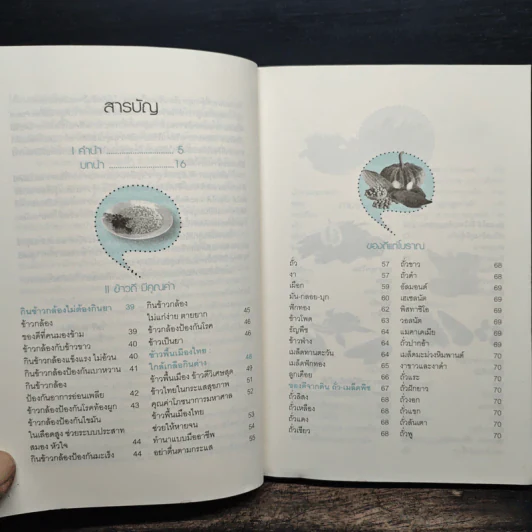 สารบัญ
|| คำนำ ........................ 5
บทนำ ........................ 16
|| ข้าวดี มีคุณค่า
กินข้าวกล้องไม่ต้องกินยา 39
ข้าวกล้อง
ของดีที่คนมองข้าม 39
ข้าวกล้องกับข้าวขาว 40
กินข้าวกล้องแข็งแรง ไม่อ้วน 40
กินข้าวกล้องป้องกันเบาหวาน 41
ข้าวกล้อง
ป้องกันอาการอ่อนเพลีย 42
ข้าวกล้องป้องกันโรคท้องผูก 43
ข้าวกล้องป้องกันไขมัน
ในเลือดสูง ช่วยระบบประสาท
สมอง หัวใจ 44
กินข้าวกล้องป้องกันมะเร็ง 44
กินข้าวกล้อง
ไม่แก่ง่าย ตายยาก 45
ข้าวกล้องป้องกันโรค 46
ข้าวเป็นยา 47
ข้าวพื้นเมืองไทย
ใกล้เกลือกินด่าง 48
ข้าวพื้นเมือง ข้าวดีวิเศษสุด
ข้าวไทยในกระแสสุขภาพ
คุณค่าโภชนาการมหาศาล
ข้าวพื้นเมืองไทย
ช่วยให้หายจน 53
ทำนาแบบมืออาชีพ 54
อย่าตื่นตามกระแส 55
ของดีแต่โบราณ
ถั่ว 57
งา 57
เผือก 59
มัน-กลอย-บุก 60
ฟักทอง 61
ข้าวโพด 63
ธัญพืช 64
ข้าวฟ่าง 64
เมล็ดทานตะวัน 65
เมล็ดฟักทอง 65
ลูกเดือย 66
ของดีจากดิน ถั่ว-เมล็ดพืช 67
ถั่วลิสง 67
ถั่วเหลือง 67
ถั่วแดง 68
ถั่วเขียว 68
ถั่วขาว 68
ถั่วดำ 68
อัลมอนด์ 69
เฮเซลนัต 69
พิสทาชิโอ 69
วอลนัต 69
แมคาเดเมีย 69
ถั่วปากอ้า 69
เมล็ดมะม่วงหิมพานต์ 69
งาขาวและงาดำ 69
ถั่วแระ 70
ถั่วฝักยาว 70
ถั่วงอก 70
ถั่วแขก 70
ถั่วลันเตา 70
ถั่วพู 70